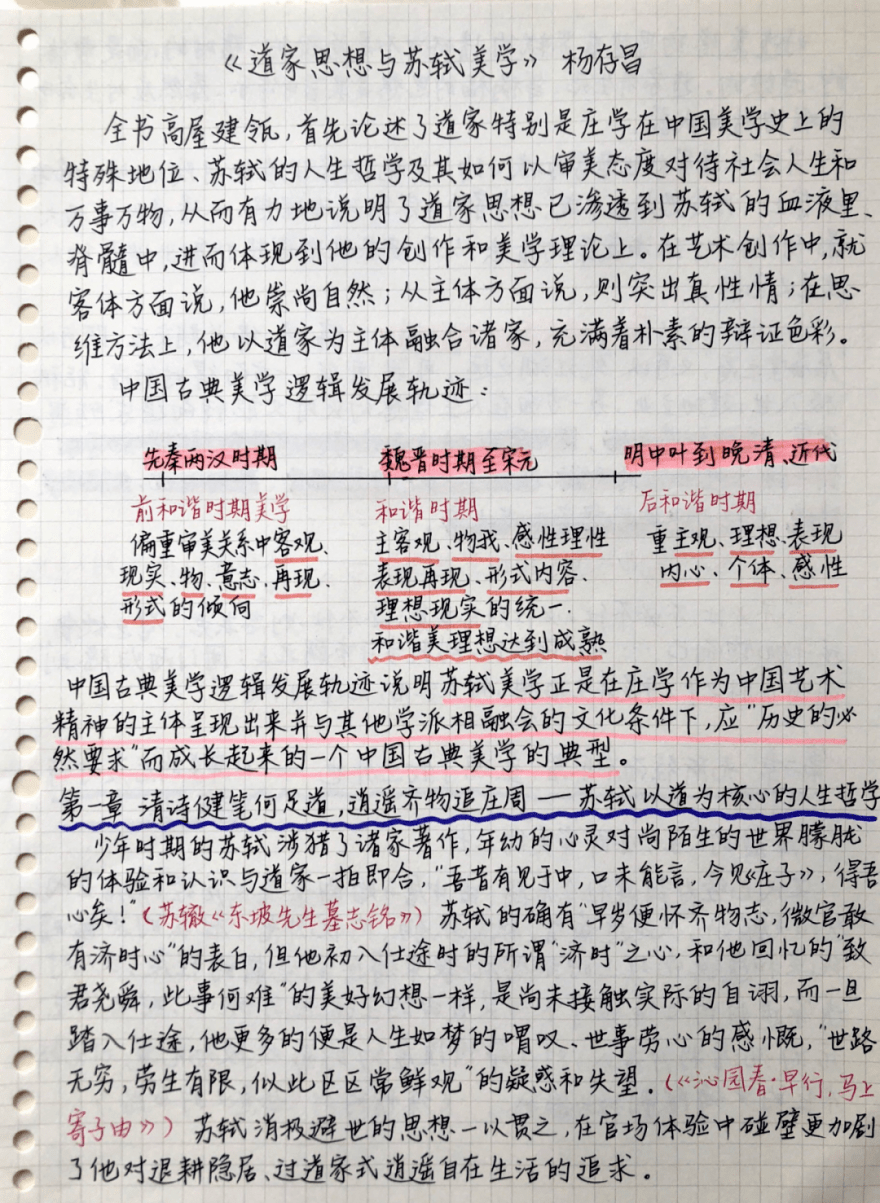 《道家思想与苏轼美学》 杨存昌
全书高屋建瓴,首先论述了道家特别是庄学在中国美学史上的
特殊地位、苏轼的人生哲学及其如何以审美态度对待社会人生和
万事万物,从而有力地说明了道家思想已渗透到苏轼的血液里、
脊髓中,进而体现到他的创作和美学理论上。在艺术创作中,就
客体方面说,他崇尚自然;从主体方面说,则突出真性情;在思
维方法上,他以道家为主体融合诸家,充满着朴素的辩证色彩。
中国古典美学逻辑发展轨迹:
先秦两汉时期 魏晋时期至宋元 明中叶到晚清、近代
前和谐时期美学 和谐时期 后和谐时期
偏重审美关系中客观、 主客观、物我、感性理性 重主观、理想、表现
现实、物、意志、再现、 表现再现、形式内容、 内心、个体、感性
形式的倾向 理想现实的统一.
和谐美理想达到成熟
中国古典美学逻辑发展轨迹说明苏轼美学正是在庄学作为中国艺术
精神的主体呈现出来并与其他学派相融会的文化条件下,应“历史的必
然要求”而成长起来的一个中国古典美学的典型。
第一章 清诗健笔何足道,逍遥齐物追庄周 — 苏轼以道为核心的人生哲学
少年时期的苏轼涉猎了诸家著作,年幼的心灵对尚陌生的世界朦胧
的体验和认识与道家一拍即合,“吾昔有见于中,口未能言,今见《庄子》,得吾
心矣!”(苏辙《东坡先生墓志铭》) 苏轼的确有“早岁便怀齐物志,微官敢
有济时心”的表白,但他初入仕途时的所谓“济时”之心,和他回忆的“致
君尧舜,此事何难”的美好幻想一样,是尚未接触实际的自诩,而一旦
踏入仕途,他更多的便是人生如梦的喟叹、世事劳心的感慨,“世路
无穷,劳生有限,似此区区常鲜观”的疑惑和失望.(《沁园春·早行,马上
寄子由》) 苏轼消极避世的思想一以贯之,在官场体验中碰壁更加剧
了他对退耕隐居、过道家式逍遥自在生活的追求。